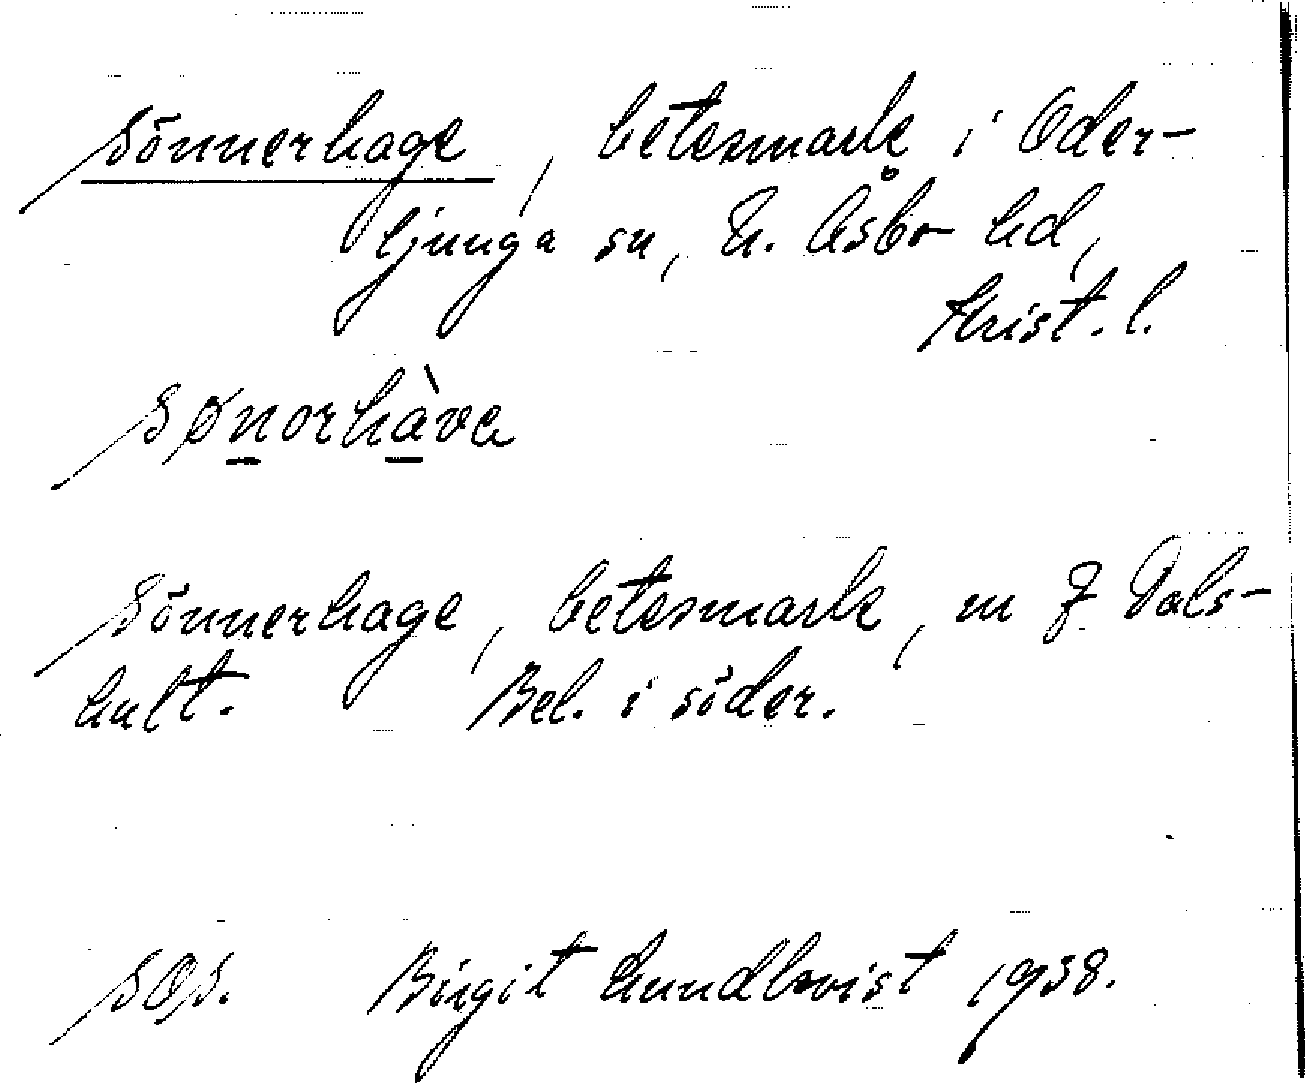 Sönnerhage, betesmark i Oder-
ljunga sn, N. Åsbo hd,
Krist. l.
sønorhàva
Sönnerhage, betesmark, m f Dals-
hult. Bel. i söder.
SOS. Birgit Lundkvist 1938.